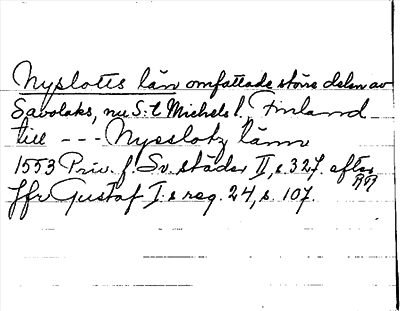 Nyslotts län omfattade större delen av
Savolaks, nu S:t Michels l., Finland
till --- Nysslotz länn
1553 Priv. f. Sv. städer II, s. 327. efter RA
Jfr Gustaf I:s reg. 24, s. 107.